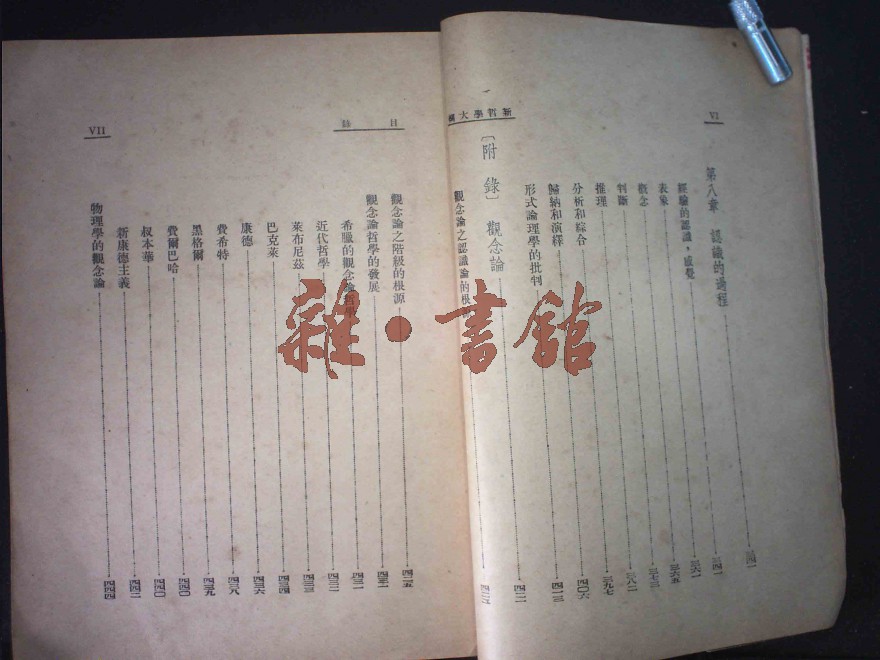 VI
新哲學大綱
第八章 認識的過程 三四一
經驗的認識,感覺 三四一
表象 三六一
概念 三六五
判斷 三七三
推理 三八二
分析和綜合 三九七
歸納和演繹 四〇六
形式論理學的批判 四一三
〔附錄〕 觀念論 四二一
觀念論之認識論的根
目錄
VII
觀念論之階級的根源 四二五
觀念論哲學的發展
希臘的觀念論哲學 四三一
近代哲學 四三二
萊布尼茲 四三三
巴克萊 四三四
康德 四三六
費希特 四三八
黑格爾 四三九
費爾巴哈 四四〇
叔本華 四四〇
新康德主義 四四二
物理學的觀念論 四四四
雜·書館